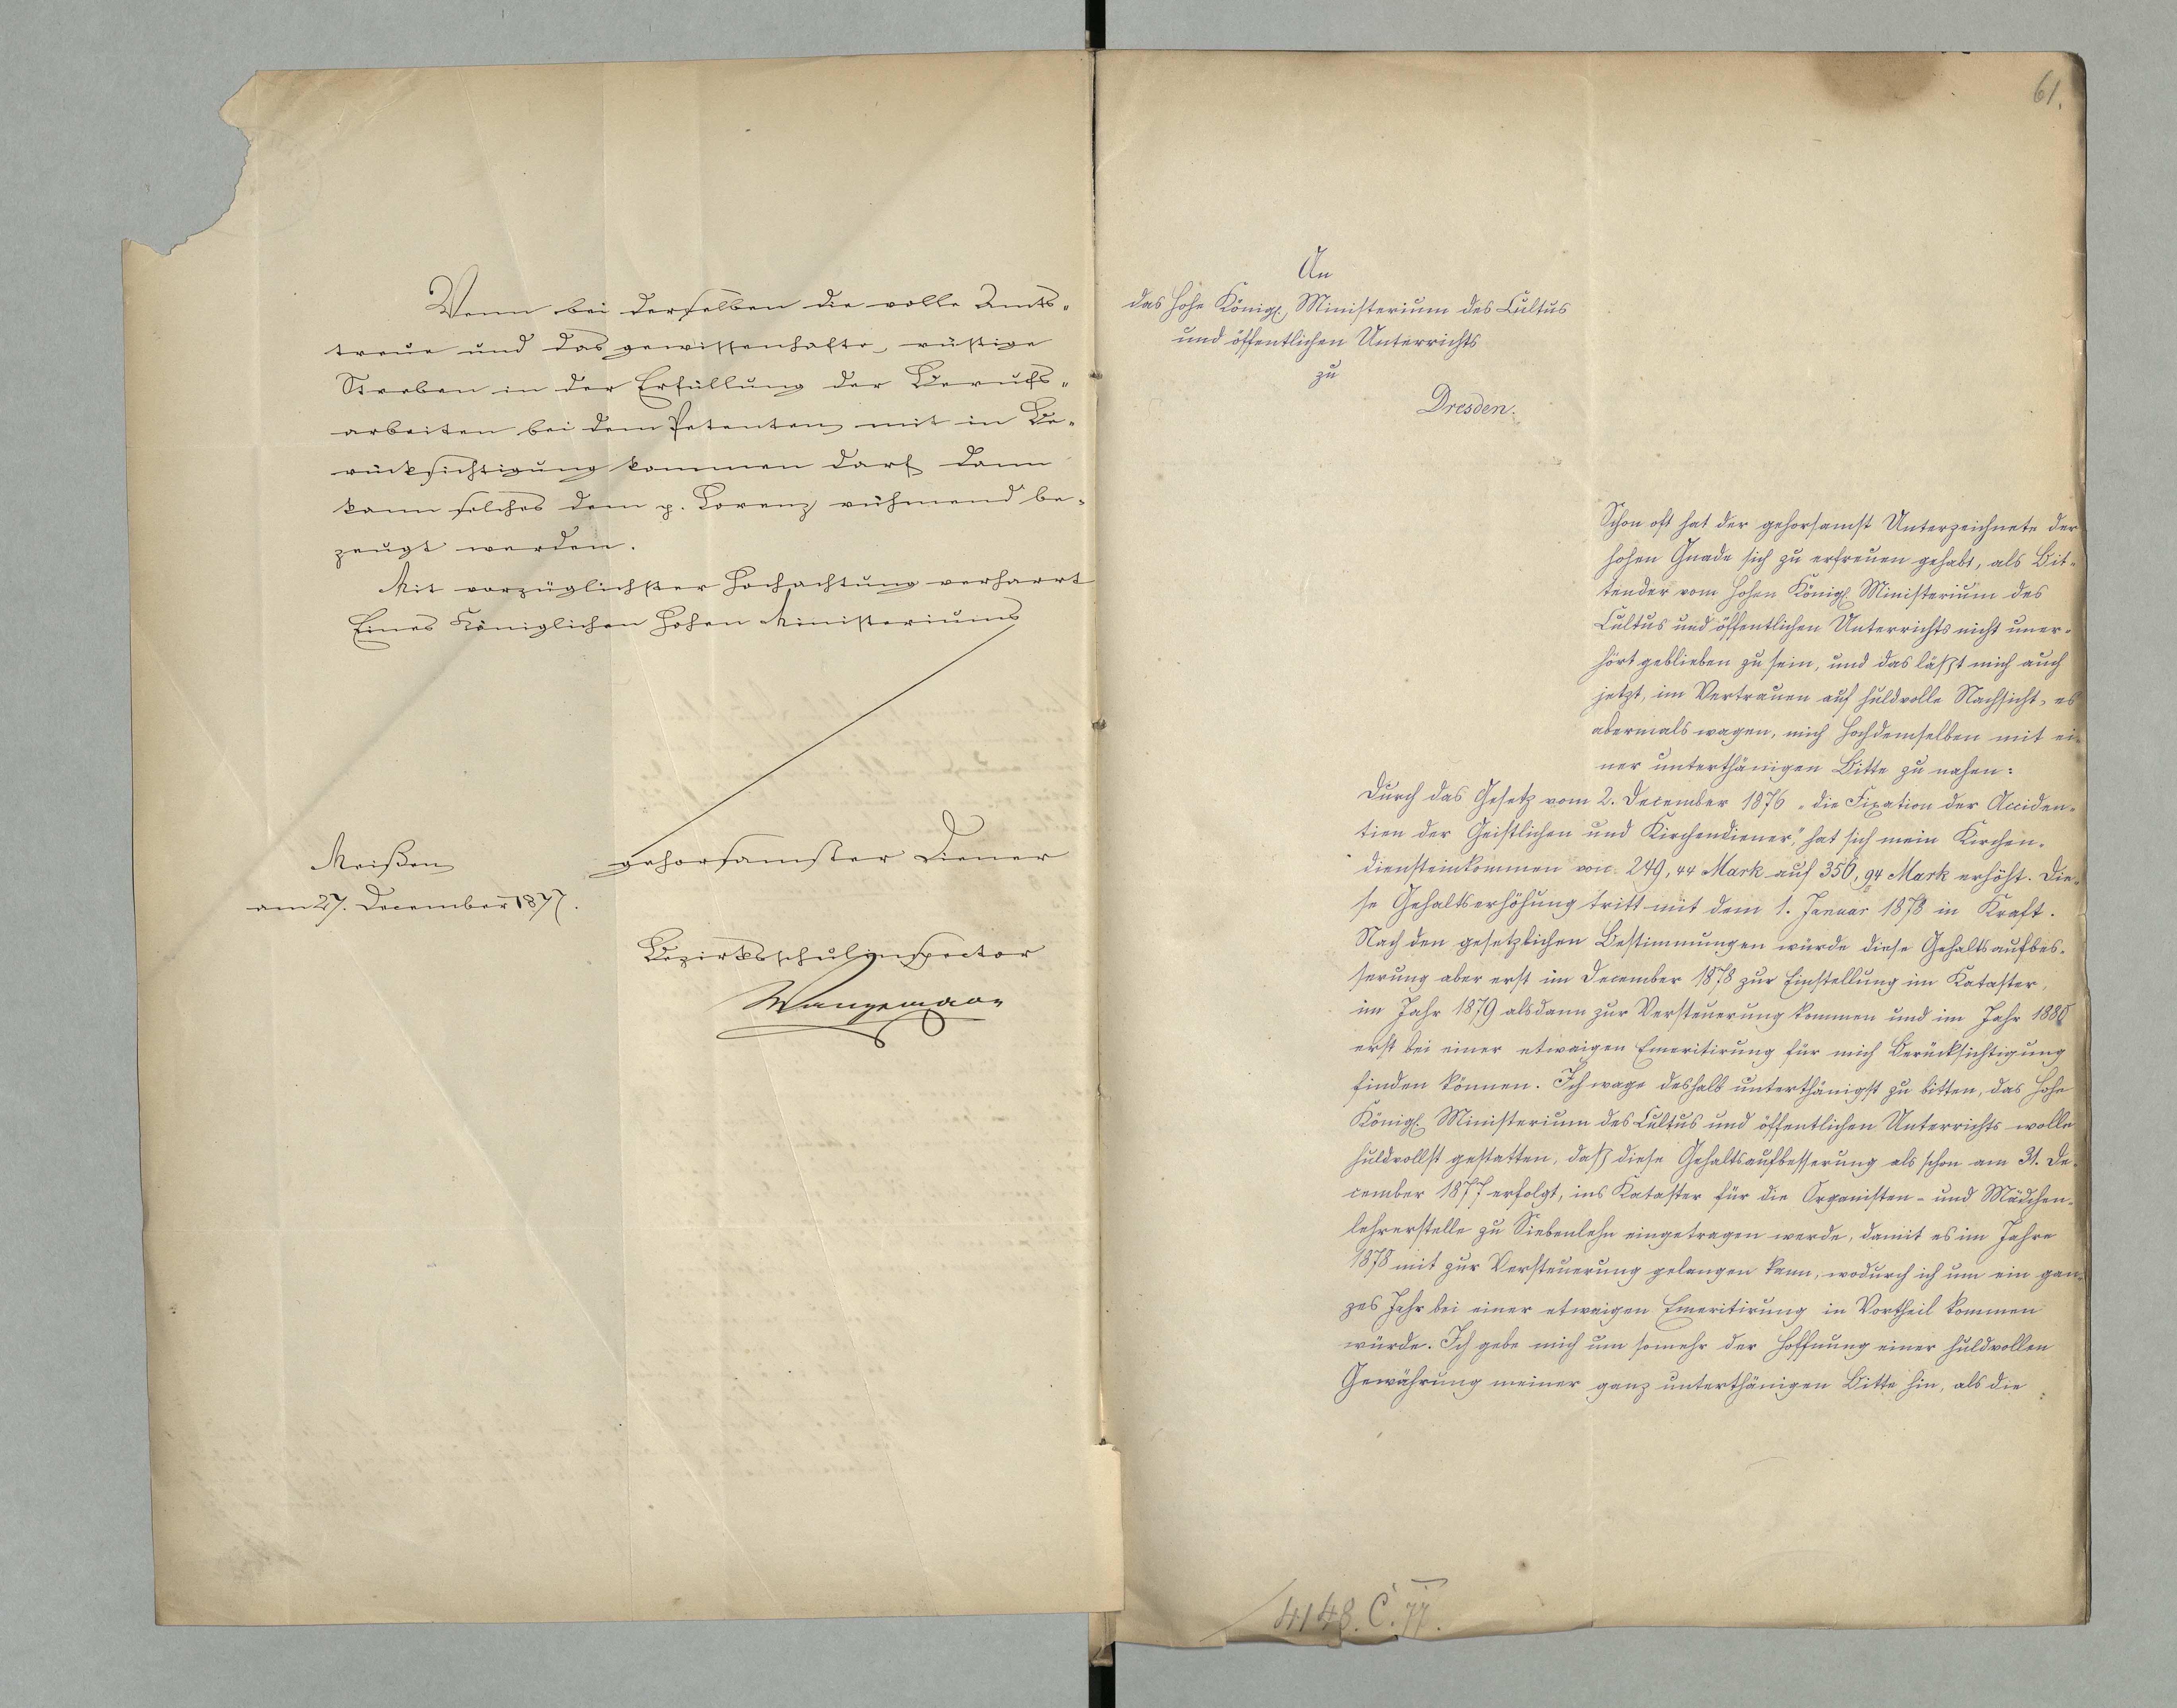 Wenn bei derselben die volle Amts-
treue und das gewissenhafte, rüstige
Streben in der Erfüllung der Berufs-
arbeiten bei dem Petenten mit in Be-
rücksichtigung kommen darf dann
kann solches dem p. Lorenz rühmend be-
zeugt werden.
Mit vorzüglichster Hochachtung verharrt
Eines Königlichen Hohen Ministeriums
Meißen
am 27. December 1877.
gehorsamster Diener
Bezirksschulinspector
Wangemann
61.
An
das Hohe Königl. Ministerium des Cultus
und öffentlichen Unterrichts
zu
Dresden.
Schon oft hat der gehorsamst Unterzeichnete der
hohen Gnade sich zu erfreuen gehabt, als Bit-
tender vom Hohen Königl. Ministerium des
Cultus und öffentlichen Unterrichts nicht uner-
hört geblieben zu sein, und das läßt mich auch
jetzt, im Vertrauen auf huldvolle Nachsicht, es
abermals wagen, mich Hochdemselben mit ei-
ner unterthänigen Bitte zu nahen:
Durch das Gesetz vom 2. December 1876 „die Fixation der Acciden-
tien der Geistlichen und Kirchendiener", hat sich mein Kirchen-
diensteinkommen von 249,44 Mark auf 356,94 Mark erhöht. Die-
se Gehaltserhöhung tritt mit dem 1. Januar 1878 in Kraft.
Nach den gesetzlichen Bestimmungen würde diese Gehaltsaufbes-
serung aber erst im December 1878 zur Einstellung im Kataster,
im Jahr 1879 alsdann zur Versteuerung kommen und im Jahr 1880
erst bei einer etwaigen Emeritirung für mich Berücksichtigung
finden können. Ich wage deshalb unterthänigst zu bitten, das Hohe
Königl. Ministerium des Cultus und öffentlichen Unterrichts wolle
huldvollst gestatten, daß diese Gehaltsaufbesserung als schon am 31. De-
cember 1877 erfolgt, ins Kataster für die Organisten- und Mädchen-
lehrerstelle zu Siebenlehn eingetragen werde, damit es im Jahre
1878 mit zur Versteuerung gelangen kann, wodurch ich um ein gan-
zes Jahr bei einer etwaigen Emeritirung in Vortheil kommen
würde. Ich gebe mich um somehr der Hoffnung einer huldvollen
Gewährung meiner ganz unterthänigen Bitte hin, als die
4148. C. 77.